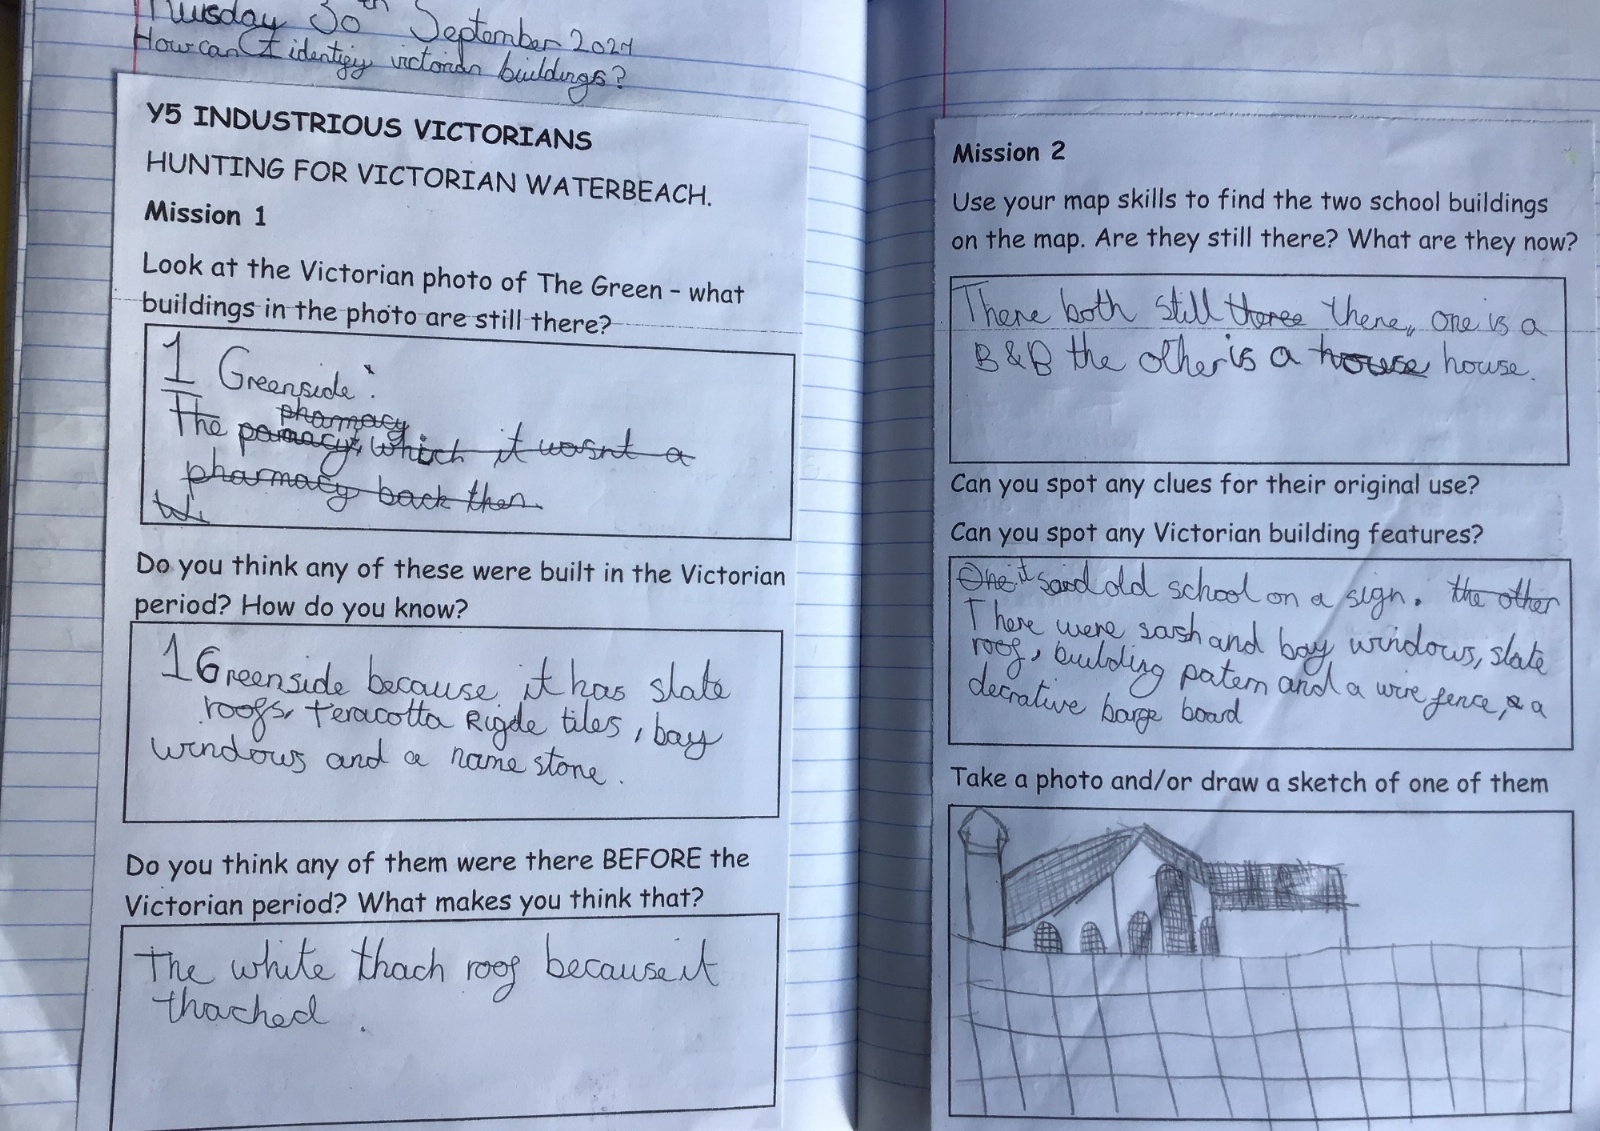 Thursday 30th September 2021
How can I identify victorian buildings?
Y5 INDUSTRIOUS VICTORIANS
HUNTING FOR VICTORIAN WATERBEACH.
Mission 1
Look at the Victorian photo of The Green - what
buildings in the photo are still there?
1 Greenside.
pharmacy
The pamacy, which it wasnt a
pharmacy back then.
Wi
Do you think any of these were built in the Victorian
period? How do you know?
1 Greenside because it has slate
roofs, teracotta Rigde tiles, bay
windows and a name stone.
Do you think any of them were there BEFORE the
Victorian period? What makes you think that?
The white thach roof because it
thached.
Mission 2
Use your map skills to find the two school buildings
on the map. Are they still there? What are they now?
There both still there there, one is a
B&B the other is a house house.
Can you spot any clues for their original use?
Can you spot any Victorian building features?
One it said old school on a sign. the other
There were sash and bay windows, slate
roof, building patern and a wire fence, & a
decrative barge board
Take a photo and/or draw a sketch of one of them